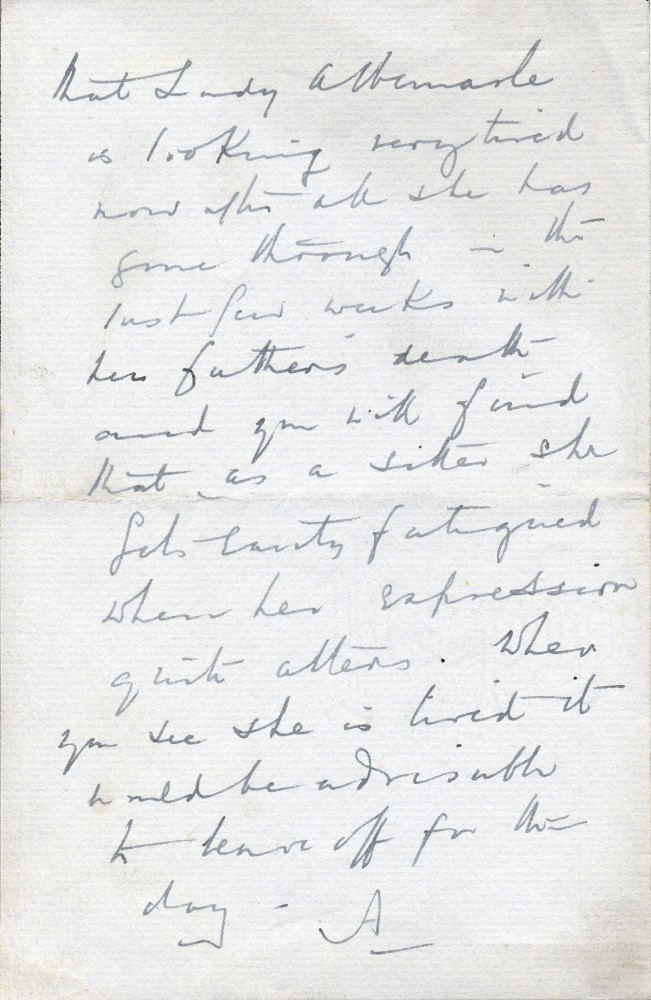 that Lady Albemarle
is looking very tired
now after all she has
gone through in the
last few weeks with
her father's death
and you will find
that as a sitter she
gets easily fatigued
when her expression
quite alters. When
you see she is tired it
would be advisable
to leave off for the
day - A